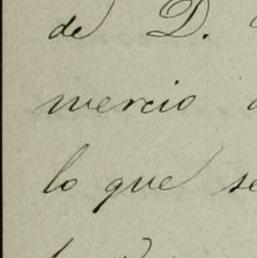 de D.
mercio
lo que se